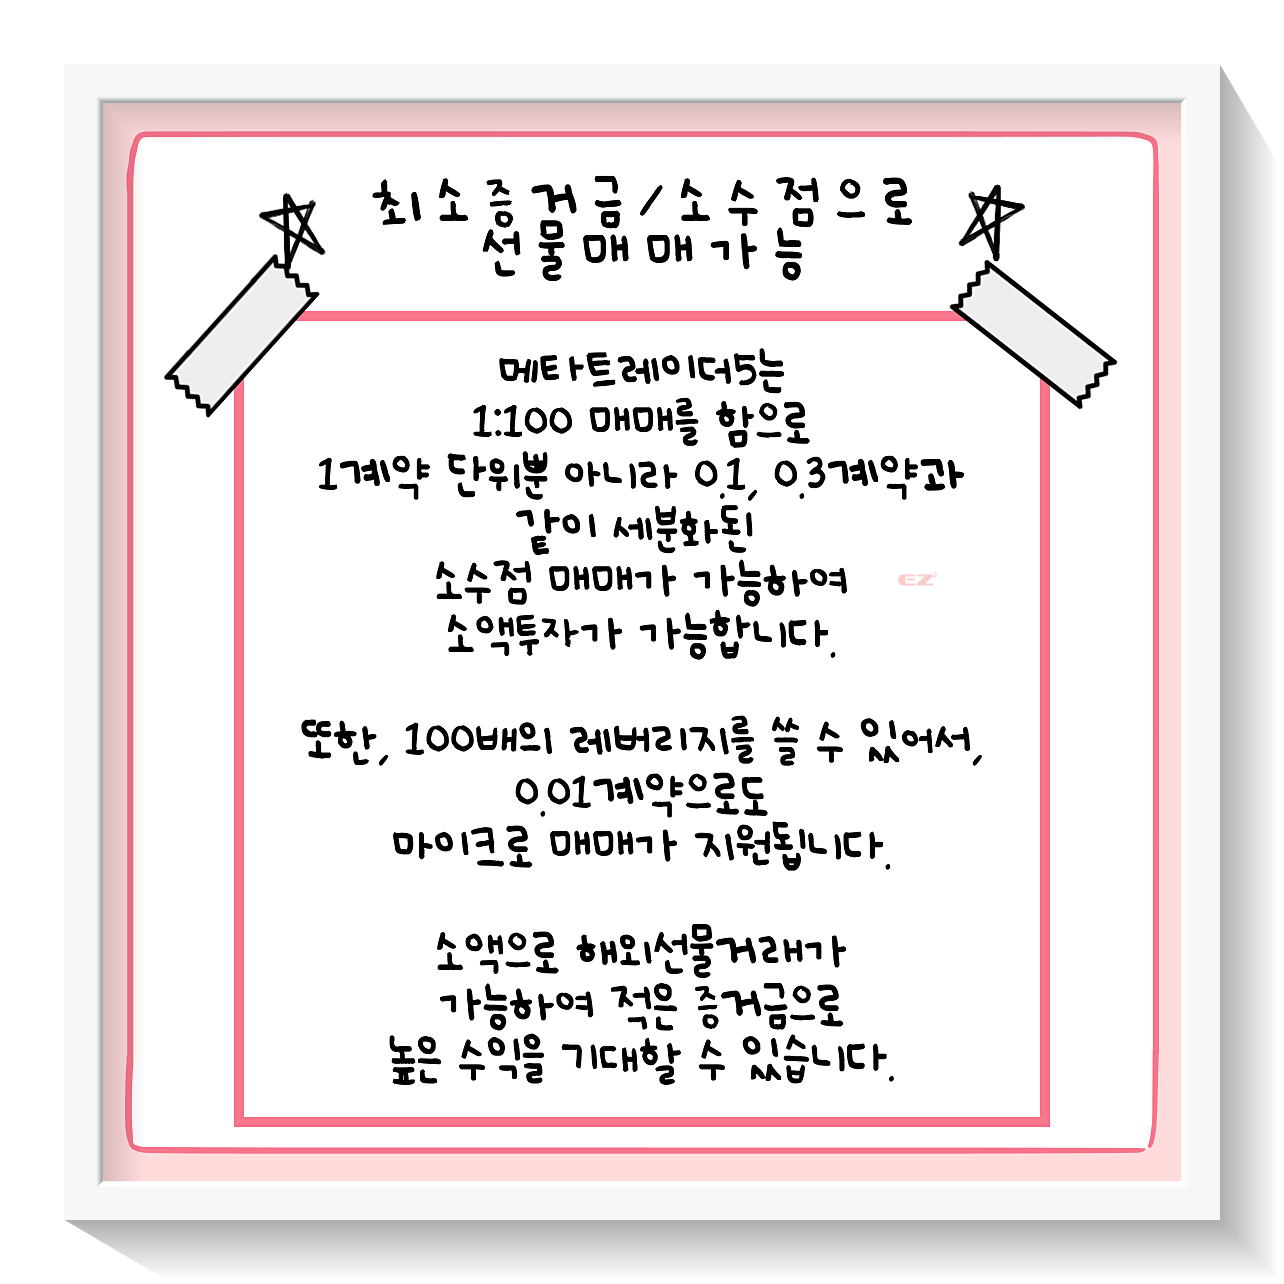 최소증거금/소수점으로
선물매매가능
메타트레이더5는
1:100 매매를 함으로
1계약 단위뿐 아니라 0.1, 0.3계약과
같이 세분화된
소수점 매매가 가능하여
EZ
소액투자가 가능합니다.
또한, 100배의 레버리지를 쓸 수 있어서,
0.01계약으로도
마이크로 매매가 지원됩니다.
소액으로 해외선물거래가
가능하여 적은 증거금으로
높은 수익을 기대할 수 있습니다.